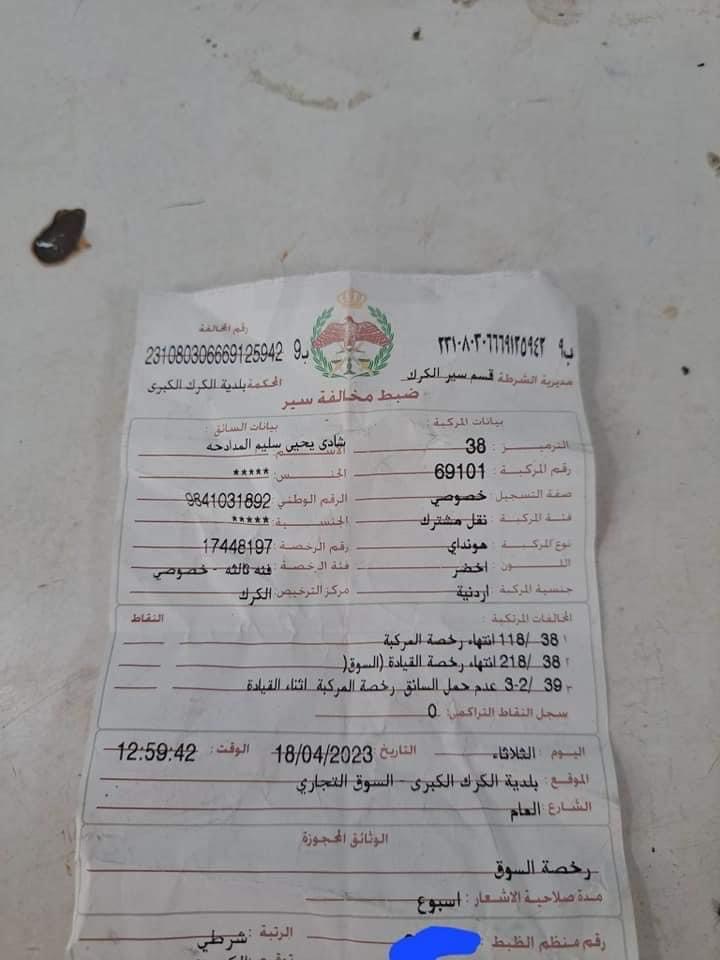 رقم المخالفة
ب9 231080306669125942
ب٩ ٢٣١٠٨٠٣٠٦٦٦٩١٢٥٩٤٢
مديرية الشرطة قسم سير الكرك
المحكمة بلدية الكرك الكبرى
ضبط مخالفة سير
بيانات المركبة :
الترميز : 38
رقم المركبة : 69101
صفة التسجيل : خصوصي
فئة المركبة : نقل مشترك
نوع المركبة : هونداي
اللون : اخضر
جنسية المركبة : اردنية
بيانات السائق :
الاسم : شادي يحيى سليم المدادحه
الجنس : *****
الرقم الوطني : 9841031892
الجنسية : *****
رقم الرخصة : 17448197
فئة الرخصة : فئه ثالثه - خصوصي
مركز الترخيص : الكرك
المخالفات المرتكبة : النقاط
١ 38 /118 انتهاء رخصة المركبة
٢ 38 /218 انتهاء رخصة القيادة (السوق(
٣ 39 /2-3 عدم حمل السائق رخصة المركبة اثناء القيادة
سجل النقاط التراكمي: 0
اليوم : الثلاثاء التاريخ : 18/04/2023 الوقت : 12:59:42
الموقع : بلدية الكرك الكبرى - السوق التجاري
الشارع : العام
الوثائق المحجوزة
رخصة السوق
مدة صلاحية الاشعار : اسبوع
رقم منظم الظبط : الرتبة : شرطي